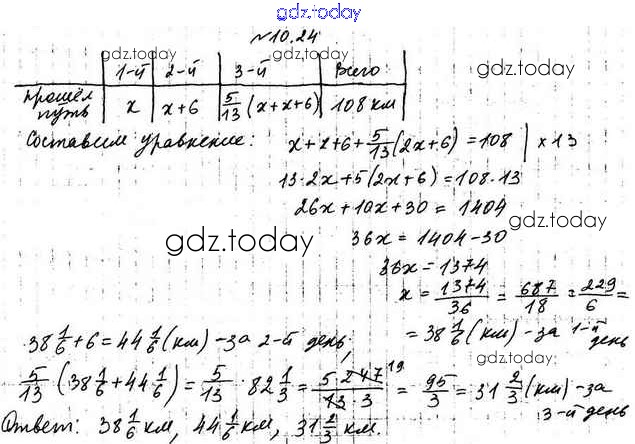 gdz.today
№10.24
gdz.today gdz.today
1-й 2-й 3-й Всего
прошёл путь x x+6 5/13 (x+x+6) 108 км
Составим уравнение: x+x+6+5/13(2x+6) = 108 | ×13
13·2x+5(2x+6)=108·13
26x+10x+30 = 1404
gdz.today
36x = 1404-30
gdz.today
36x = 1374
x = 1374/36 = 687/18 = 229/6 =
= 38 1/6 (км) - за 1-й день
38 1/6 + 6 = 44 1/6 (км) - за 2-й день,
gdz.today
5/13 (38 1/6 + 44 1/6) = 5/13 · 82 1/3 = 5 247 19/13 3 = 95/3 = 31 2/3 (км) - за 3-й день
Ответ: 38 1/6 км, 44 1/6 км, 31 2/3 км.
gdz.today